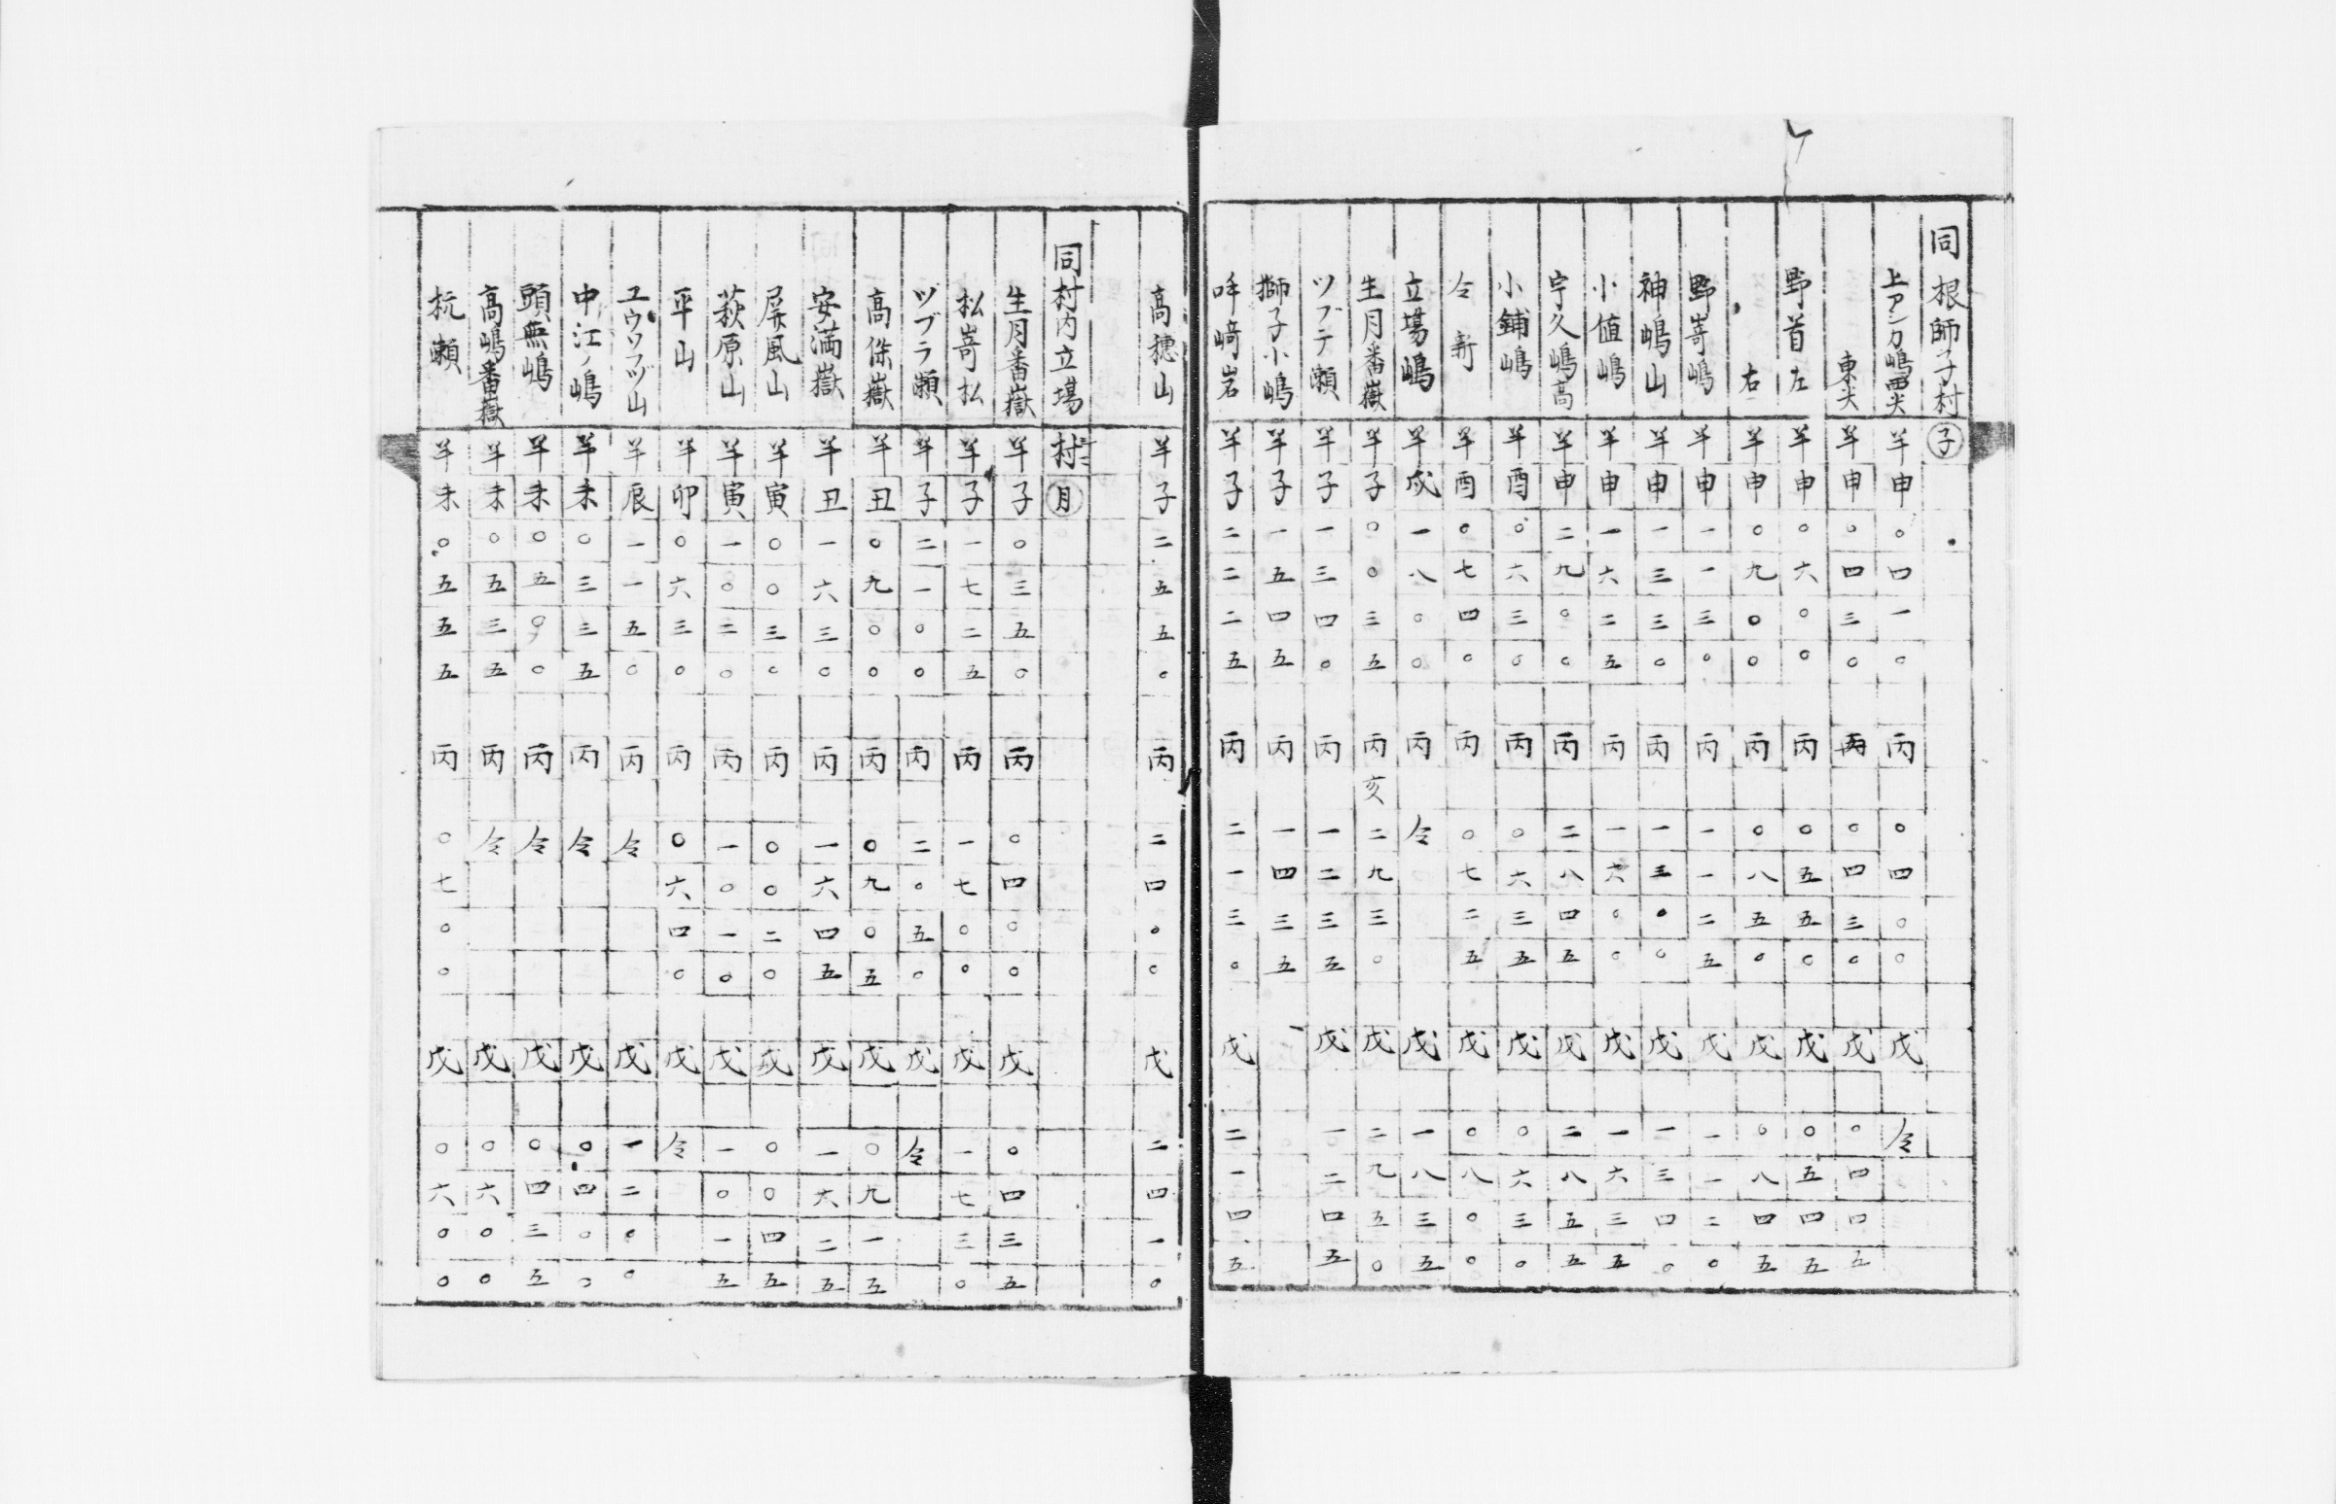 同 根師子村 子
上アンカ嶋西尖 羊申〇四一〇 丙〇四〇〇 戊 仝
東尖 羊申〇四三〇 丙〇四三〇 戊〇四四五
野首左 羊申〇六〇〇 丙〇五五〇 戊〇五四五
右 羊申〇九〇〇 丙〇八五〇 戊〇八四五
野嵜嶋 羊申一一三〇 丙一一二五 戊一一二〇
神嶋山 羊申一三三〇 丙一三〇〇 戊一三四〇
小値嶋 羊申一六二五 丙一六〇〇 戊一六三五
宇久嶋高 羊申二九〇〇 丙二八四五 戊二八五五
小鋪嶋 羊酉〇六三〇 丙〇六三五 戊〇六三〇
仝 新 羊酉〇七四〇 丙〇七二五 戊〇八〇〇
立場嶋 羊戌一八〇〇 丙仝 戊一八三五
生月番嶽 羊子〇〇三五 丙亥二九三〇 戊二九五〇
ツブテ瀬 羊子一三四〇 丙一二三五 戊一二四五
獅子小嶋 羊子一五四五 丙一四三五
崎岩 羊子二二二五 丙二一三〇 戊二一四五
高穂山 羊子二五五〇 丙二四〇〇 戊二四一〇
同村内立場 村 月
生月番嶽 羊子〇三五〇 丙〇四〇〇 戊〇四三五
松嵜松 羊子一七二五 丙一七〇〇 戊一七三〇
ヅブラ瀬 羊子二一〇〇 丙二〇五〇 戊仝
高 嶽 羊丑〇九〇〇 丙〇九〇五 戊〇九一五
安満嶽 羊丑一六三〇 丙一六四五 戊一六二五
屏風山 羊寅〇〇三〇 丙〇〇二〇 戊〇〇四五
萩原山 羊寅一〇二〇 丙一〇一〇 戊一〇一五
平山 羊卯〇六三〇 丙〇六四〇 戊仝
ユウツヅ山 羊辰一一五〇 丙仝 戊一二〇〇
中江ノ嶋 羊未〇三三五 丙仝 戊〇四〇〇
頭無嶋 羊未〇五〇〇 丙仝 戊〇四三五
高嶋番嶽 羊未〇五三五 丙仝 戊〇六〇〇
杭瀬 羊未〇五五五 丙〇七〇〇 戊〇六〇〇